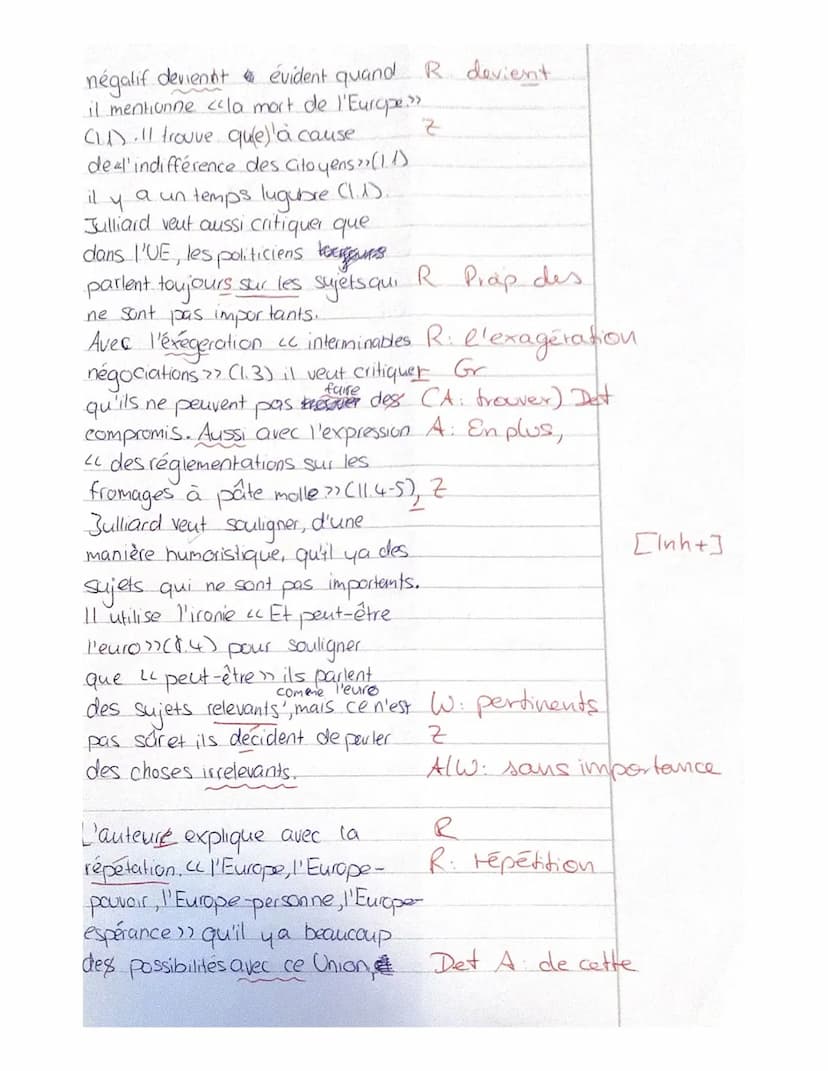 négatif devient évident quand R devient
il mentionne «la mort de l'Europe»
(l.1). Il trouve qu(e)'à cause Z
de «l'indifférence des citoyens» (l.1)
il y a un temps lugubre (l.1).
Julliard veut aussi critiquer que
dans l'UE, les politiciens
parlent toujours sur les sujets qui R Präp des
ne sont pas importants.
Avec l'éxégeration « interminables R: l'exagération
négociations » (l.3) il veut critiquer Gr
qu'ils ne peuvent pas faire des (A: trouver) Det
compromis. Aussi avec l'expression A: En plus,
« des réglementations sur les
fromages à pâte molle » (ll.4-5), Z
Julliard veut souligner, d'une
manière humoristique, qu'il ya des [Inh+]
sujets qui ne sont pas importants.
Il utilise l'ironie « Et peut-être
l'euro» (l.4) pour souligner
que « peut-être » ils parlent
des sujets relevants comme l'euro, mais ce n'est W: pertinents
pas sûr et ils décident de parler Z
des choses irrelevants. A/W: sans importance
L'auteure explique avec la R
répétation « l'Europe, l'Europe- R: répétition
pouvoir, l'Europe-personne, l'Europe-
espérance » qu'il ya beaucoup
des possibilités avec ce Union, Det A: de cette